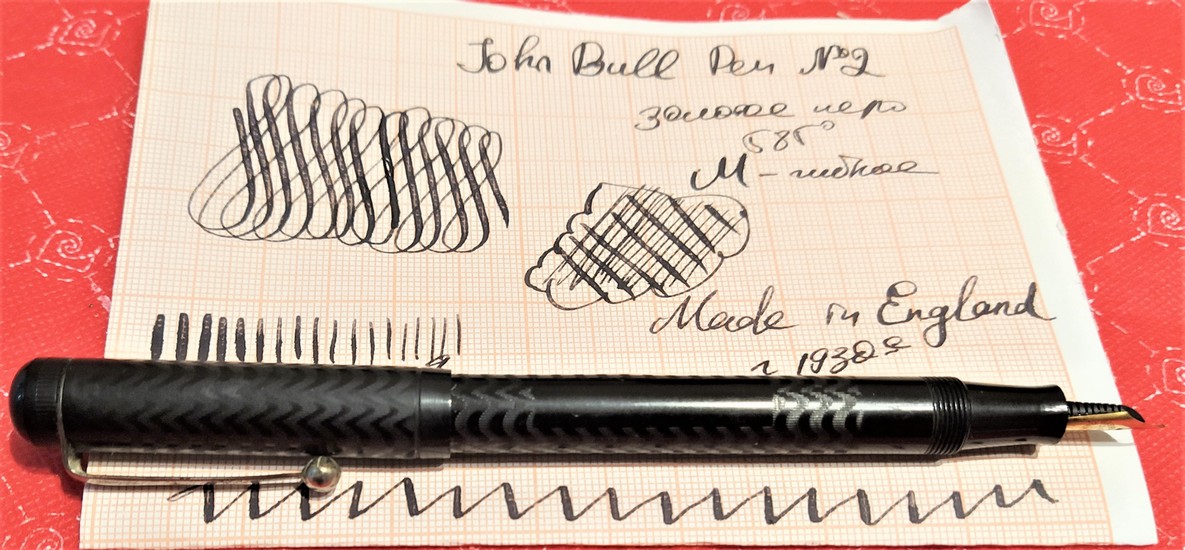 John Bull Pen №2
золотое перо
585°
М - гибкое
Made in England
~ 1930е